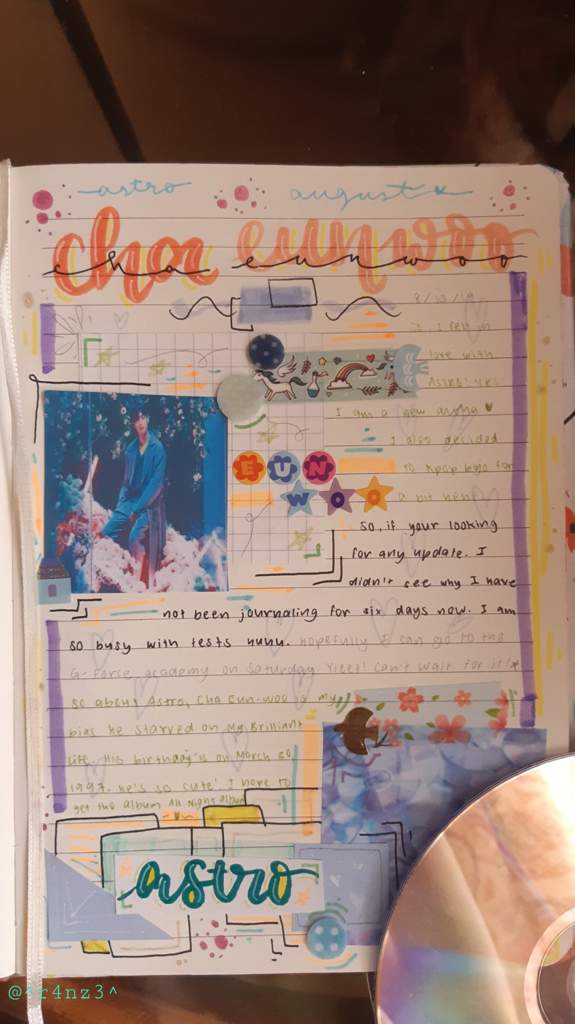 astro august
cha eunwoo
cha eunwoo
I fell in
love with
Astro! yes
I am a new aroha ♥
I also decided
to kpop bujo for
a bit hehe
EUN
WOO
So, if your looking
for any update. I
didn't see why I have
not been journaling for six days now. I am
so busy with tests huhu. Hopefully I can go to the
G-Force academy on Saturday. Yieet! Can't wait for it
So about Astro, Cha Eun-woo is my
bias. He starred on My Brilliant
Life. His birthday is on March 30
1997. He's so cute! I hope to
get the album All Night album
astro
@^r4nz3^